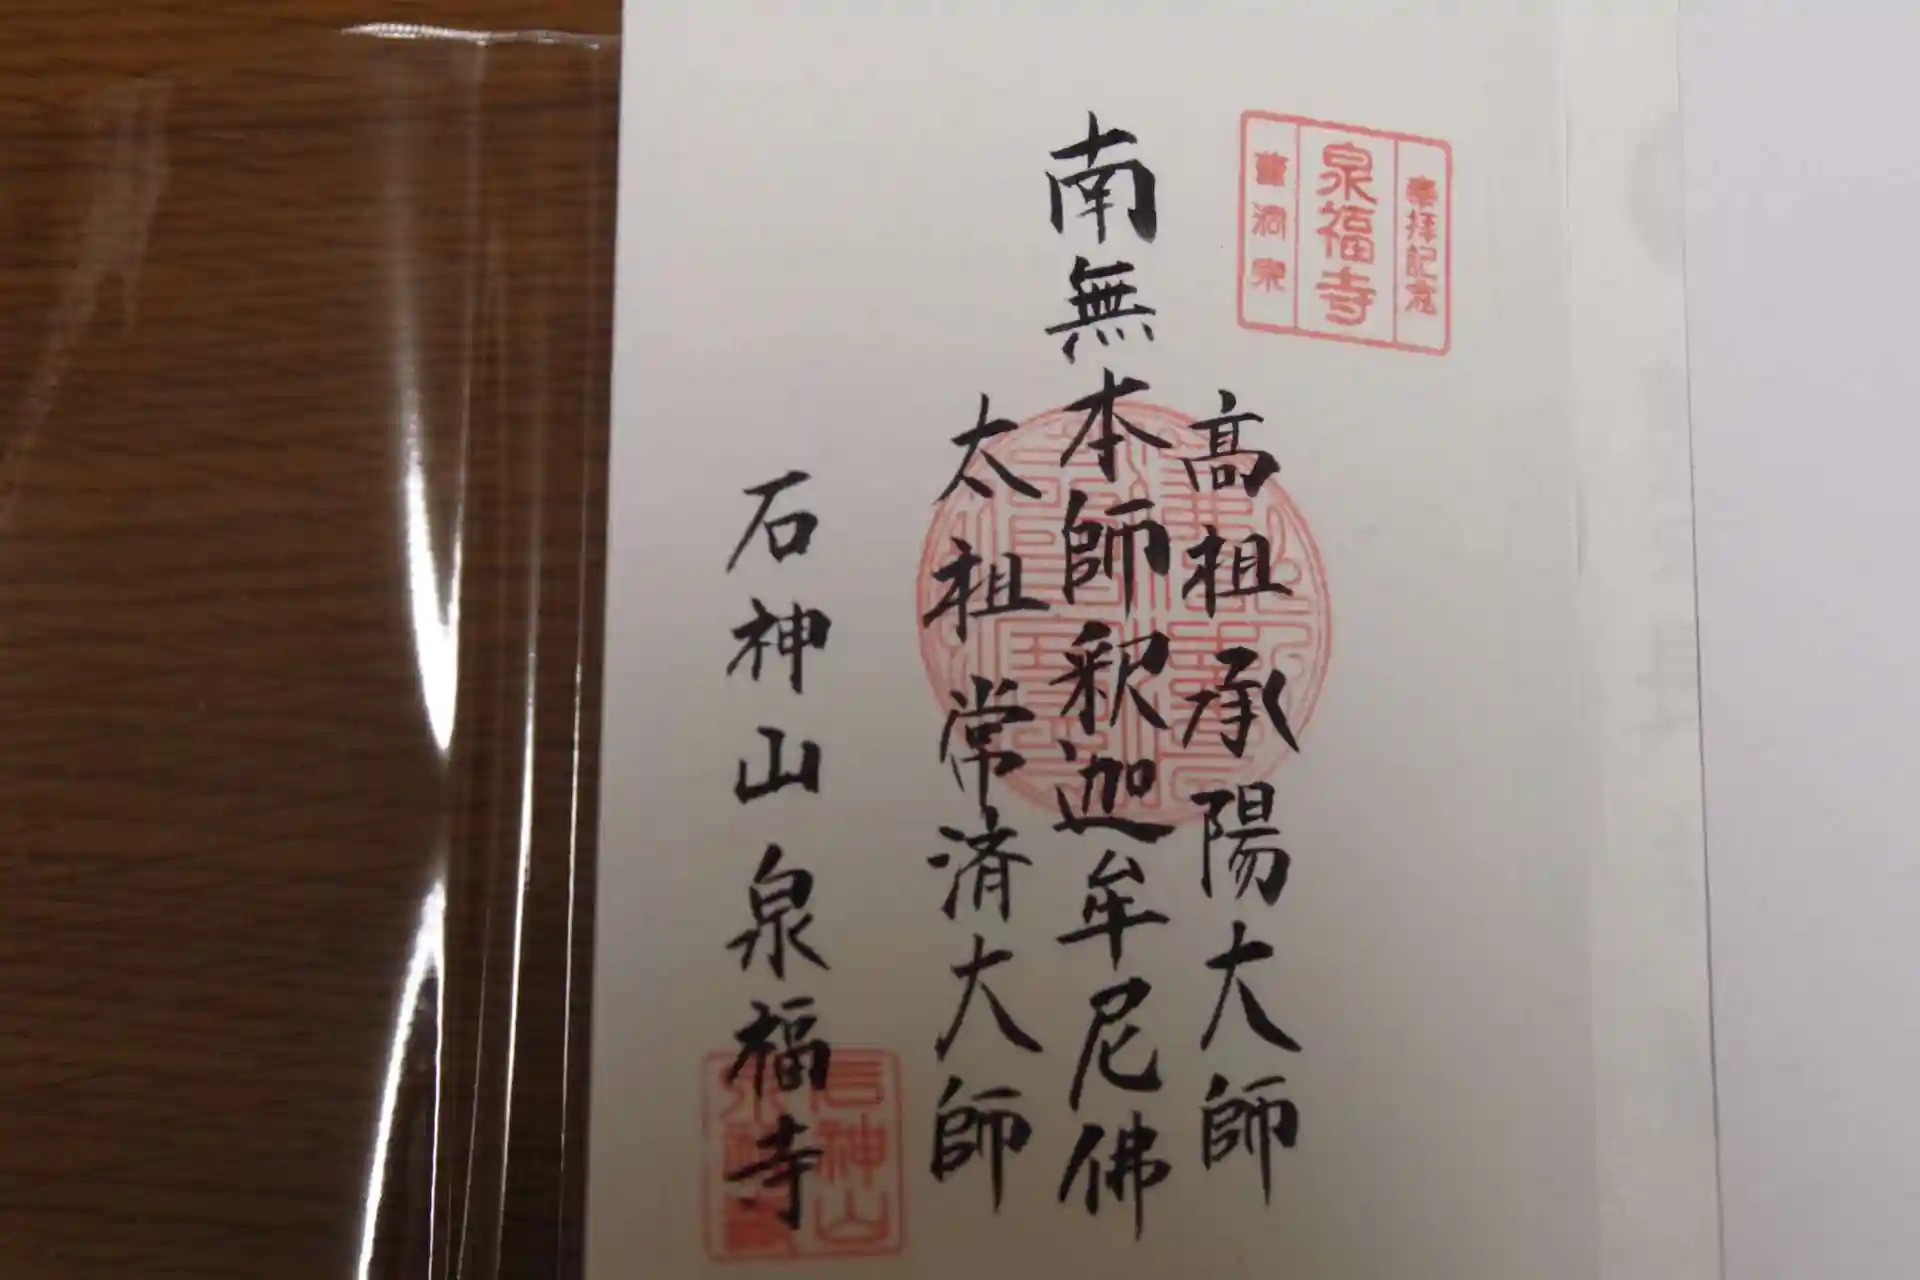 奉拝記念
泉福寺
曹洞宗
高祖承陽大師
南無本師釈迦牟尼佛
太祖常済大師
石神山泉福寺